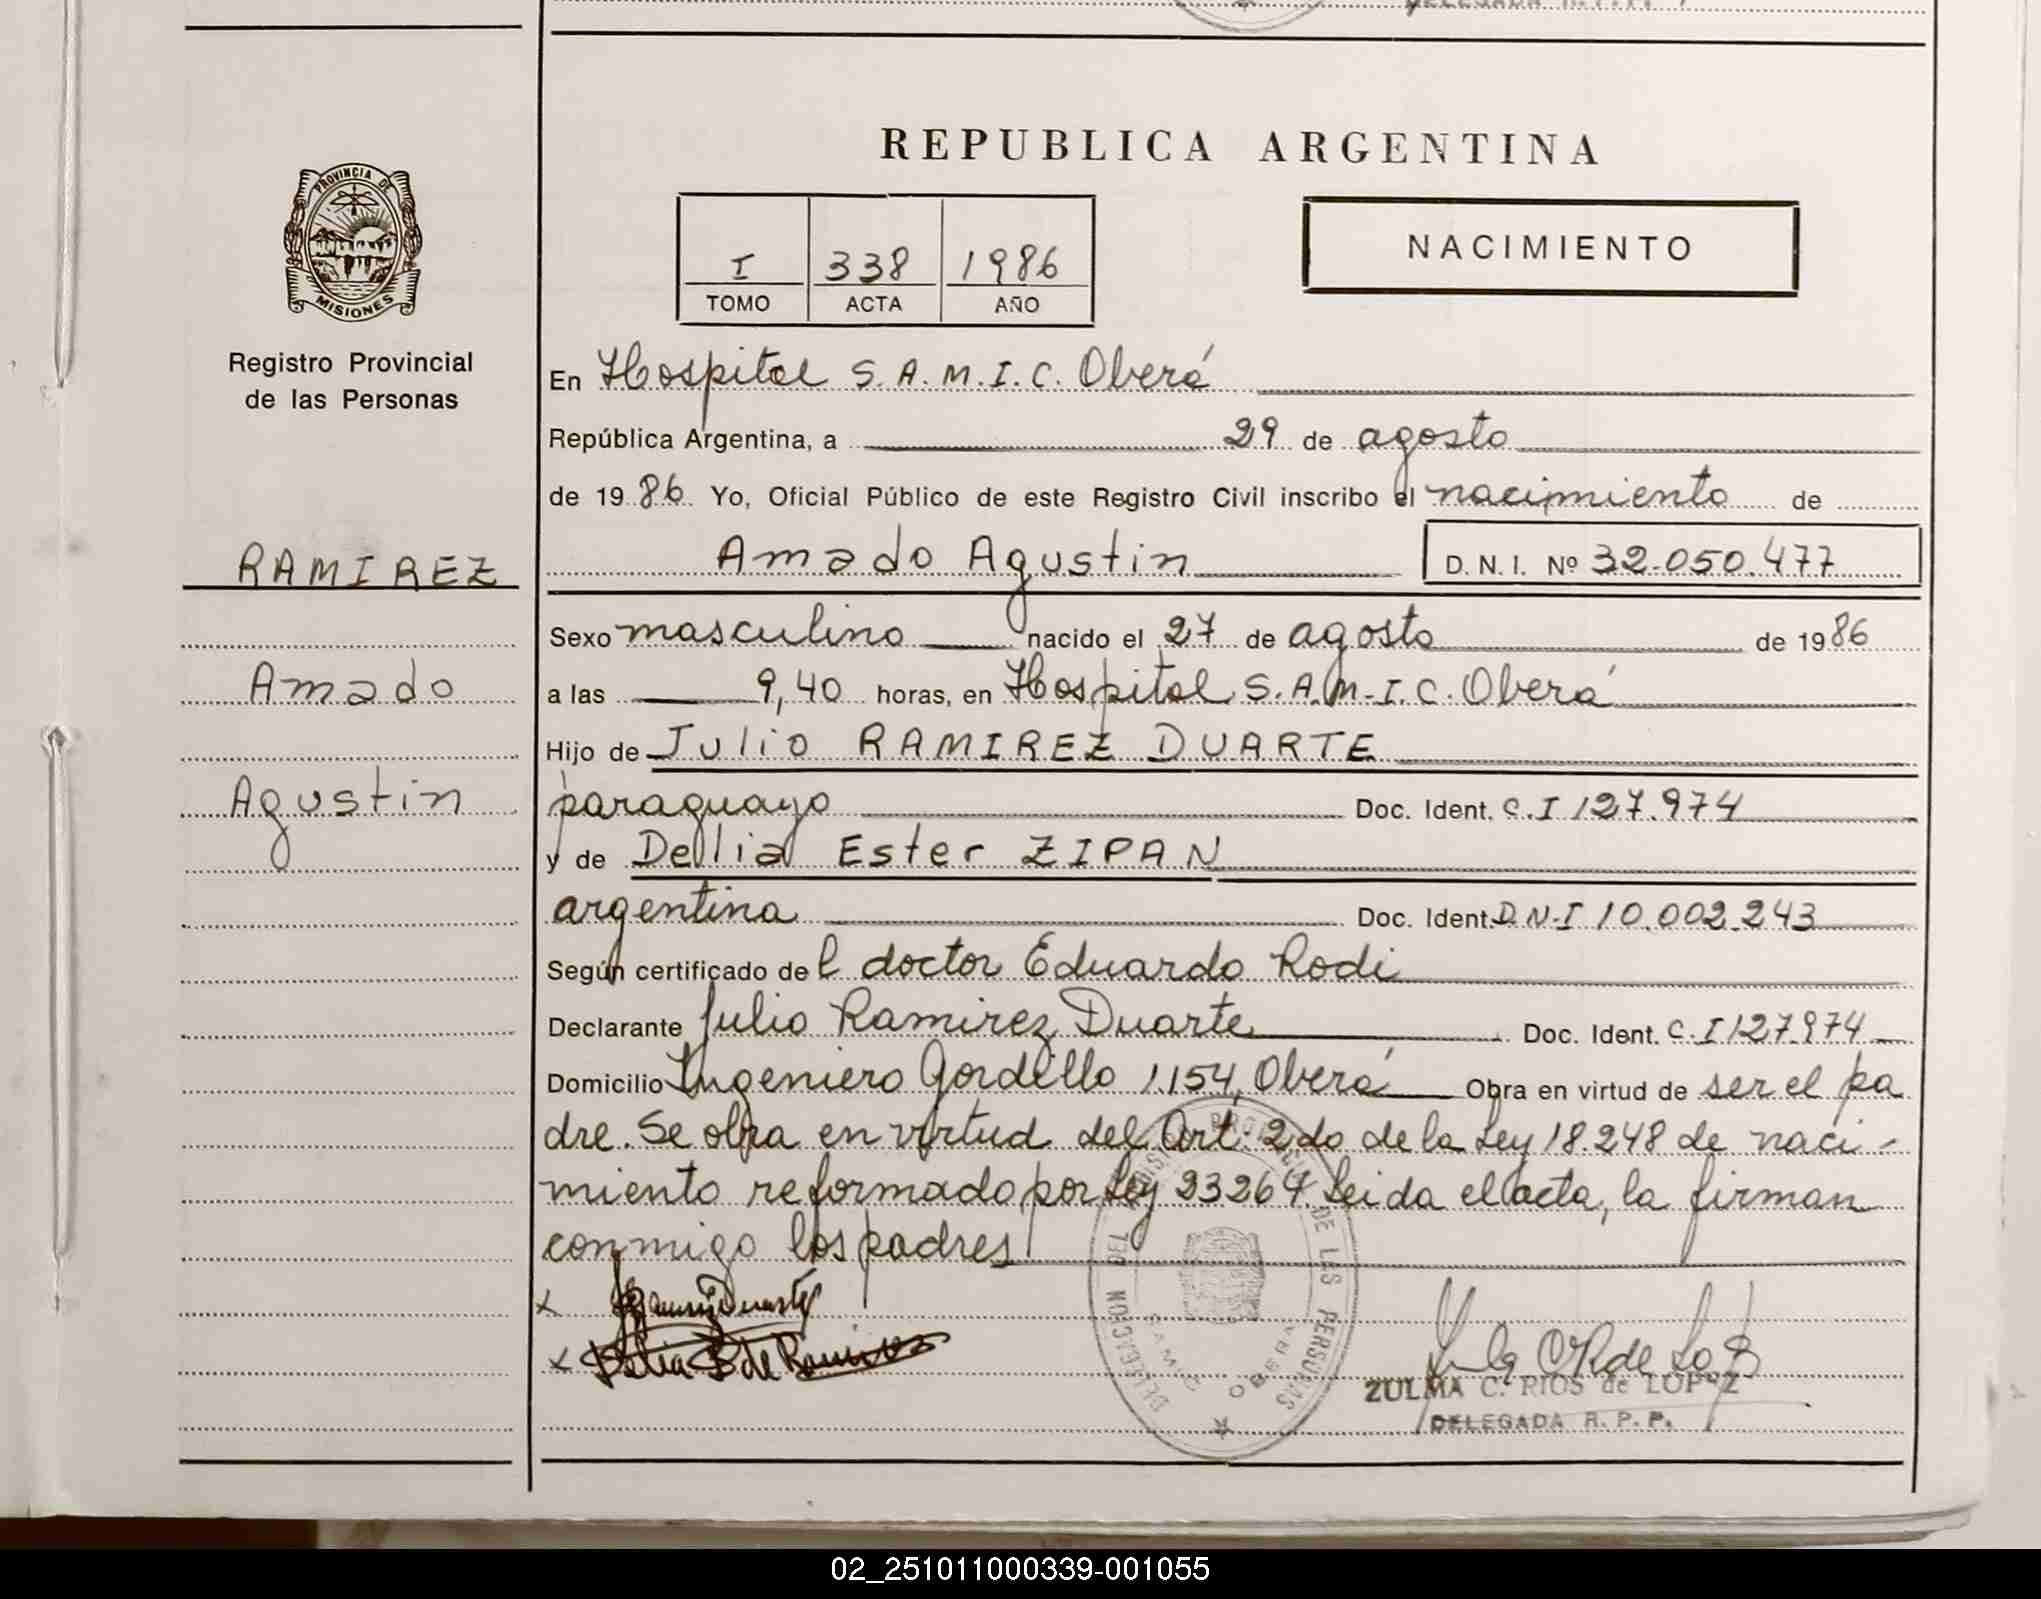 REPUBLICA ARGENTINA
PROVINCIA DE
MISIONES
Registro Provincial
de las Personas
I 338 1986
TOMO ACTA AÑO
NACIMIENTO
En Hospital S.A.M.I.C. Oberá
República Argentina, a 29 de agosto
de 1986. Yo, Oficial Público de este Registro Civil inscribo el nacimiento de
RAMIREZ
Amado Agustin D.N.I. Nº 32.050.477
Sexo masculino nacido el 27 de agosto de 1986
Amado
a las 9,40 horas, en Hospital S.A.M.I.C. Oberá
Hijo de Julio RAMIREZ DUARTE
Agustin
paraguayo Doc. Ident. C.I 127.974
y de Delia Ester ZIPAN
argentina Doc. Ident. D.N.I 10.002.243
Según certificado del doctor Eduardo Rodi
Declarante Julio Ramirez Duarte Doc. Ident. C.I 127.974
Domicilio Ingeniero Gordillo 1.154, Oberá Obra en virtud de ser el pa
dre. Se obra en virtud del Art. 2do de la Ley 18.248 de naci-
miento reformado por Ley 23264. Leida el acta, la firman
conmigo los padres
DELEGACION DEL DE LAS PERSONAS
SAMIC OBERA
ZULMA C. RIOS de LOPEZ
DELEGADA R.P.P.
02_251011000339-001055